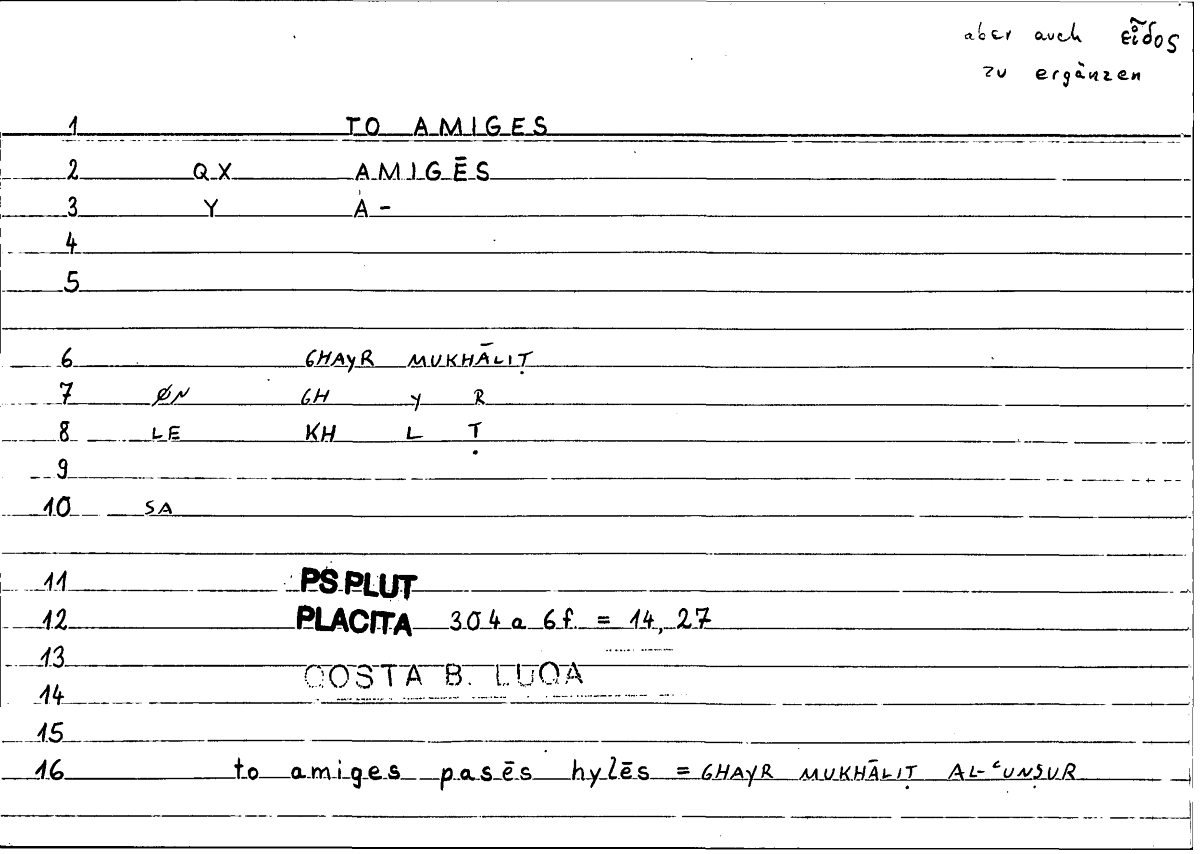 aber auch εἶδος
zu ergänzen
1 TO AMIGES
2 QX AMIGĒS
3 Y A-
4
5
6 GHAYR MUKHĀLIṬ
7 ØN GH Y R
8 LE KH L Ṭ
9
10 SA
11 PS.PLUT
12 PLACITA 304 a 6 f. = 14, 27
13
QOSTA B. LUQA
14
15
16 to amiges pasēs hylēs = GHAYR MUKHĀLIṬ AL-ʿUNṢUR